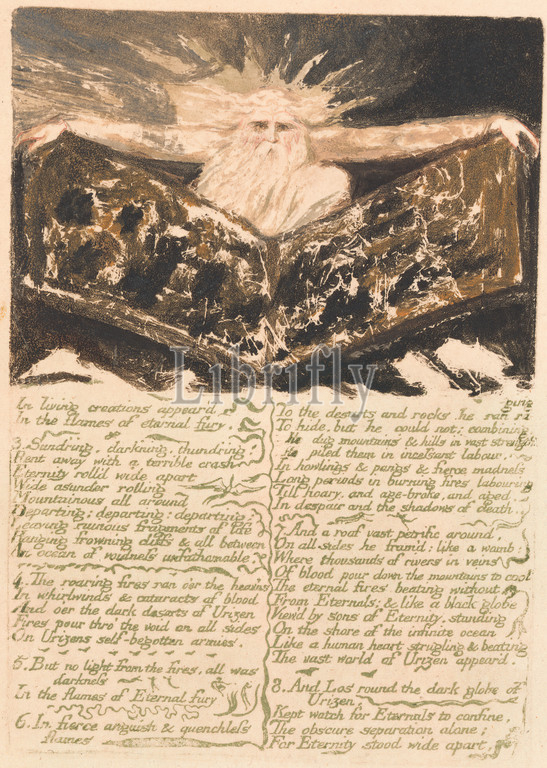 Librifly
In living creations appear'd
In the flames of eternal fury.
3. Sundring, dark'ning, thund'ring!
Rent away with a terrible crash
Eternity roll'd wide apart
Wide asunder rolling
Mountainous all around
Departing; departing; departing:
Leaving ruinous fragments of life
Hanging frowning cliffs & all between
An ocean of voidness unfathomable.
4. The roaring fires ran o'er the heav'ns
In whirlwinds & cataracts of blood
And o'er the dark desarts of Urizen
Fires pour thro' the void on all sides
On Urizens self-begotten armies.
5. But no light from the fires. all was
darkness
In the flames of Eternal fury
6. In fierce anguish & quenchless
flames
To the desarts and rocks he ran
To hide, but he could not; combining
He dug mountains & hills in vast strength,
He piled them in incessant labour,
In howlings & pangs & fierce madness
Long periods in burning fires labouring
Till hoary, and age-broke, and aged,
In despair and the shadows of death.
7. And a roof vast petrific around,
On all sides he fram'd: like a womb;
Where thousands of rivers in veins
Of blood pour down the mountains to cool
The eternal fires beating without
From Eternals; & like a black globe
View'd by sons of Eternity, standing
On the shore of the infinite ocean
Like a human heart strugling & beating
The vast world of Urizen appear'd.
8. And Los round the dark globe of
Urizen,
Kept watch for Eternals to confine,
The obscure separation alone;
For Eternity stood wide apart,